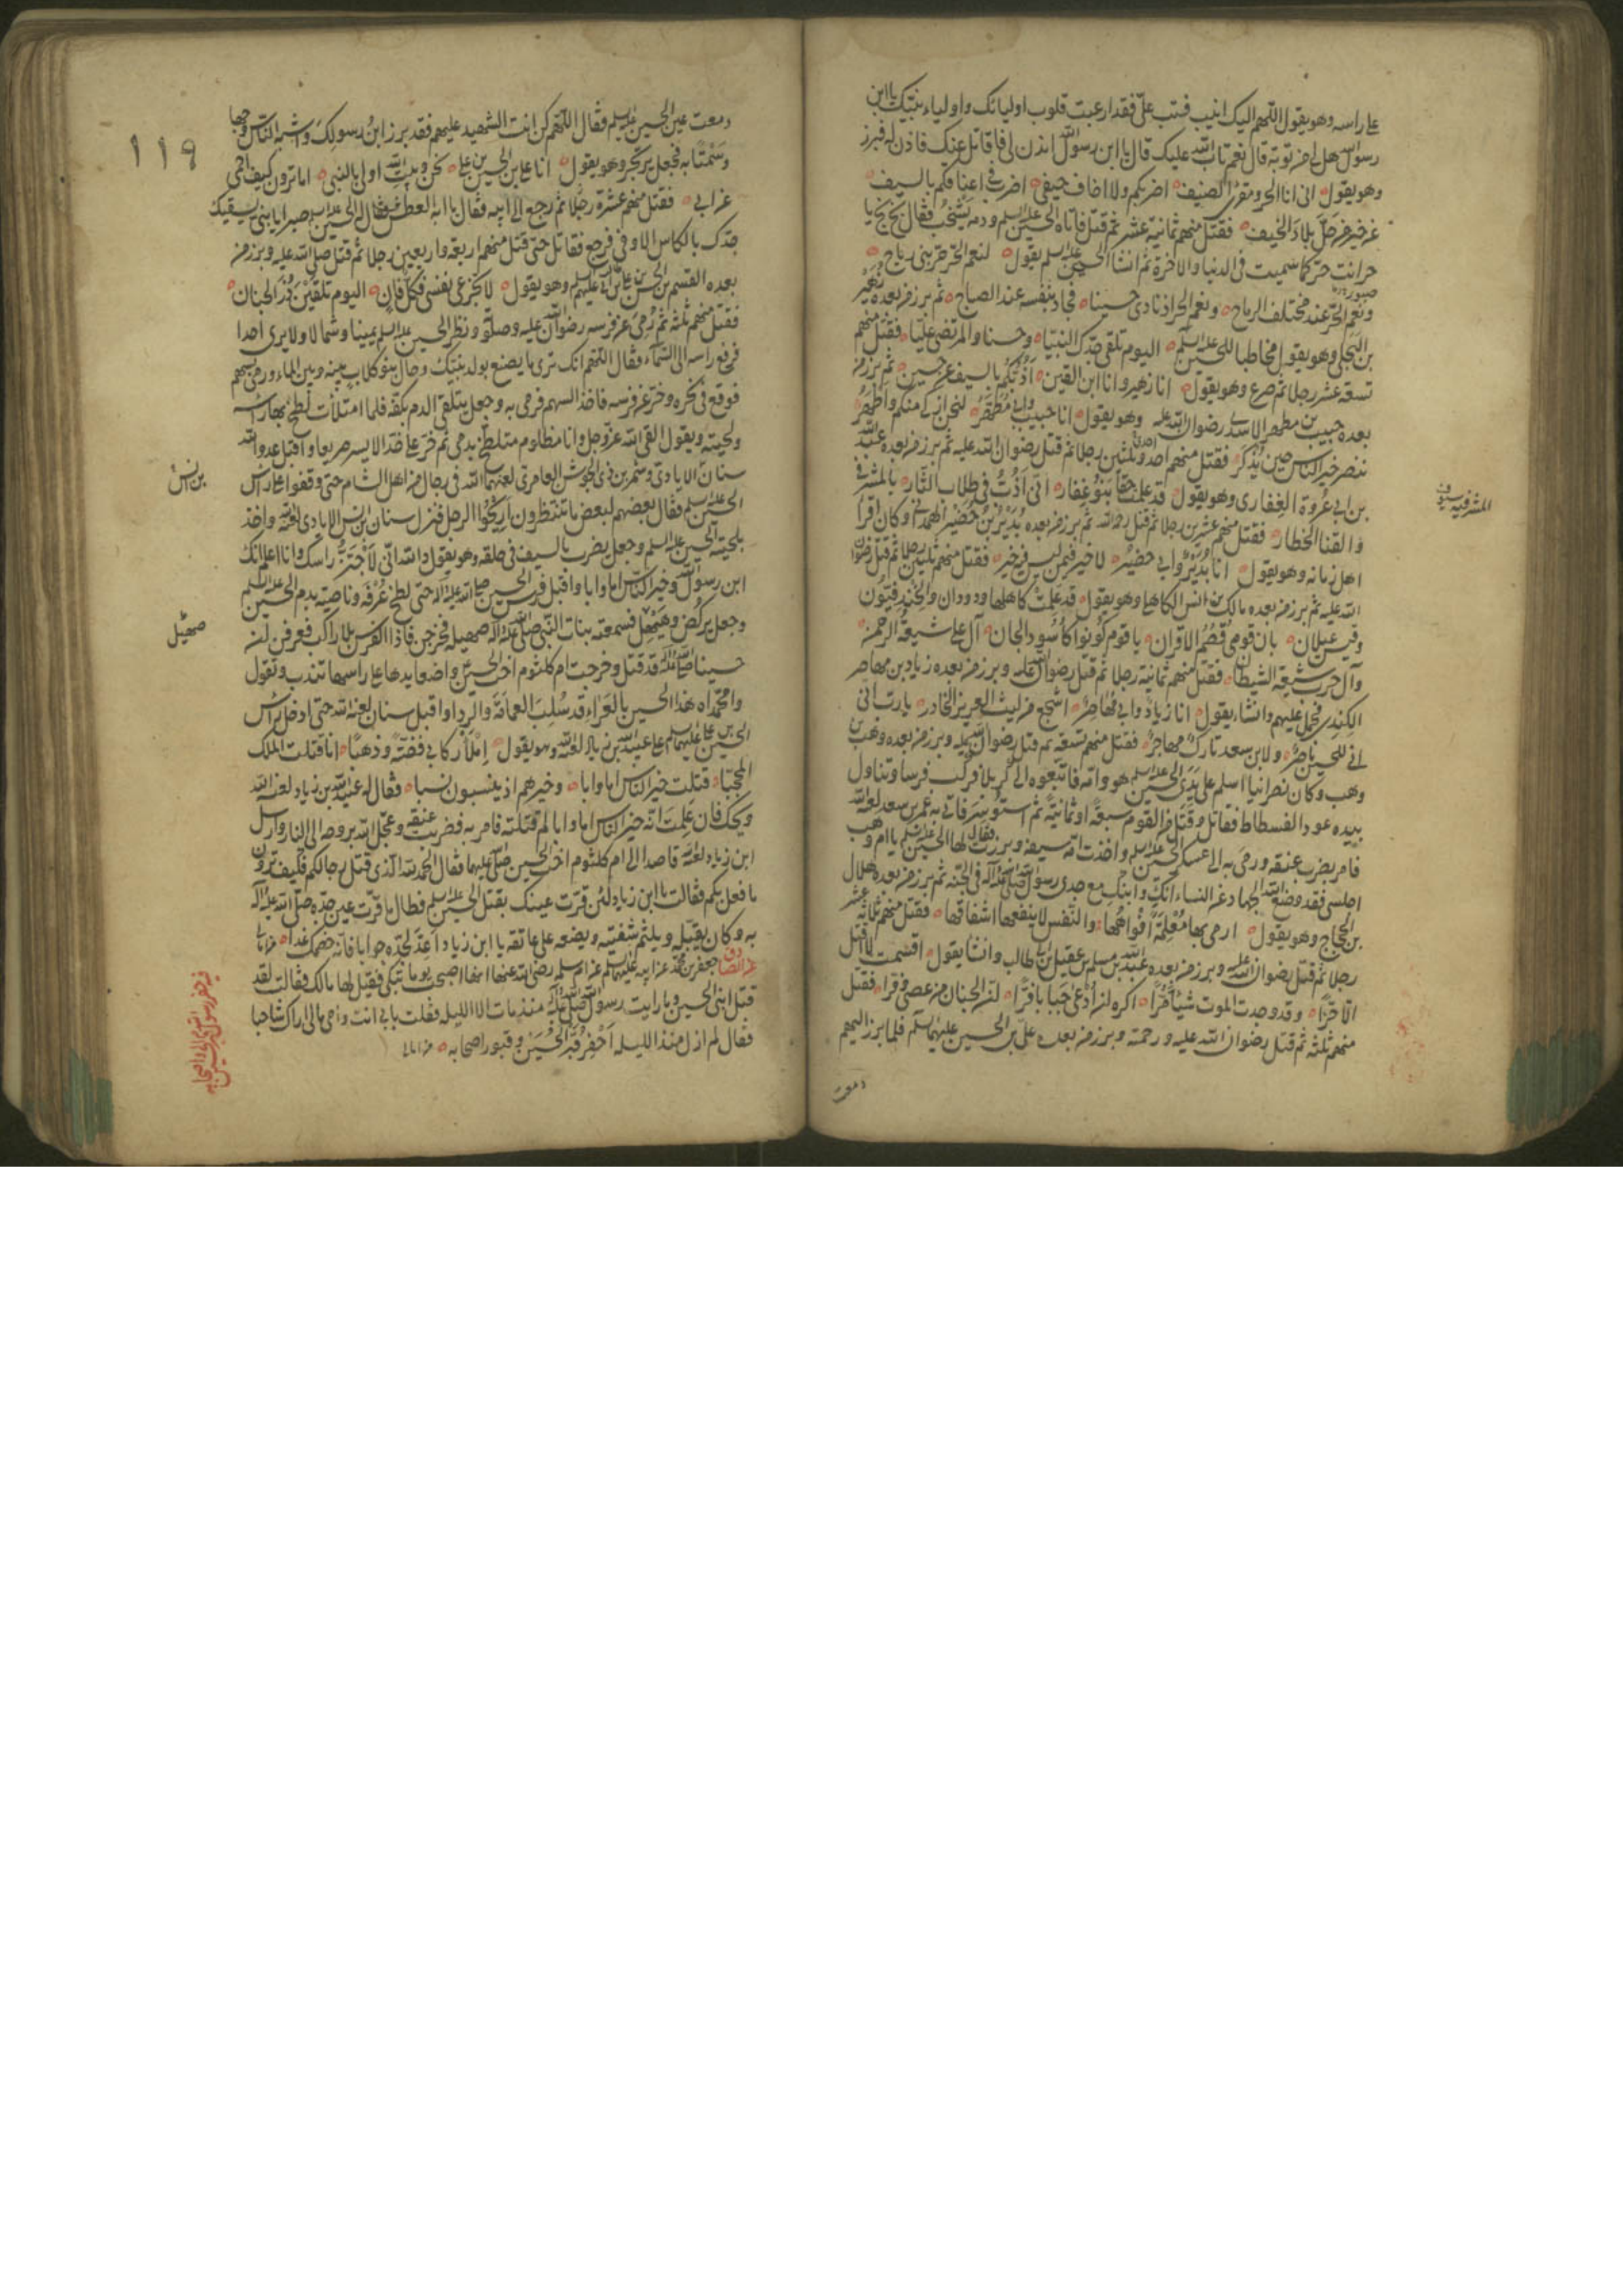 على راسه وهو يقول اللهم اليك انيب فتب علىّ فقد ارعبت قلوب اوليائك واولياء نبيّك يا ابن
رسول الله هل لى من توبة قال نعم تاب الله عليك قال يا ابن رسول الله ائذن لى فاقاتل عنك فاذن له فبرز
وهو يقول انى انا الحر ومقرى الضيف اضربكم ولا اخاف حيفى اضرب فى اعناقكم بالسيف
عن خير من حلّ بلاد الخيف فقتل منهم ثمانية عشر ثم قتل فاتاه الحسين عليه السلم ودمه يشخب فقال بخ بخ يا
حر انت حرّ كما سميت فى الدنيا والاخرة ثم انشا الحسين عليه السلم يقول لنعم الحر حرّ بنى رياح
صبور
ونعم الحرّ عند مختلف الرماح ونعم الحر اذ نادى حسينا فجاد بنفسه عند الصباح ثم برز من بعده زهير
بن البجلى وهو يقول مخاطبا للحسين عليه السلم اليوم نلقى جدّك النبيّا وحسنا والمرتضى عليّا فقتل منهم
تسعة عشر رجلا ثم صرع وهو يقول انا زهير وانا ابن القين اذبّكم بالسيف عن حسين ثم برز من
بعده حبيب بن مطهر الاسدى رضوان الله عليه وهو يقول انا حبيب وابى مُطَهَّرُ لنحن ازكى منكم واطهر
ننصر خير الناس حين يُذكر فقتل منهم احدا وثلثين رجلا ثم قتل رضوان الله عليه ثم برز من بعده عبد الله
بن ابى عُروة الغفارى وهو يقول قد علمت حقا بنو غفار انى اذُبُّ فى طلاب الثّار بالمشرفى
والقنا الخطار فقتل منهم عشرين رجلا ثم قتل رحمه الله ثم برز من بعده بُرير بن خضير الهمدانى وكان اقرا
اهل زمانه وهو يقول انا بُرير وابى خضير لا خير فيمن ليس فيه خير فقتل منهم ثلثين رجلا ثم قتل رضوان
الله عليه ثم برز من بعده مالك بن انس الكاهلى وهو يقول قد علمت كاهلها ودودان والخندفيّون
وقيس عيلان بان قومى قُصُم الاقران يا قوم كونوا كاُسود الجان آل على شيعة الرحمن
وآل حرب شيعة الشيطان فقتل منهم ثمانية رجلا ثم قتل رضوان الله عليه وبرز من بعده زياد بن مهاصر
الكندى فحمل عليهم وانشا يقول انا زياد وابى مُهاصر اشجع من ليث العرين الخادر يا رب انى
انى للحسين ناصر ولابن سعد تارك مهاجر فقتل منهم تسعة ثم قتل رضوان الله عليه وبرز من بعده وهب بن
وهب وكان نصرانيا اسلم على يدى الحسين عليه السلم هو وامّه فاتبعوه الى كربلا فركب فرسا وتناول
بيده عود الفسطاط فقاتل وقتل من القوم سبعة او ثمانية ثم استوسر فاتى به عمر بن سعد لعنه الله
فامر بضرب عنقه ورمى به الى عسكر الحسين عليه السلم واخذت امّه سيفه وبرزت فقال لها الحسين عليه السلم يا ام وهب
اجلسى فقد وضع الله الجهاد عن النساء انكِ وابنكِ مع جدى رسول الله صلى الله عليه وآله فى الجنّة ثم برز من بعده هلال
بن الحجاج وهو يقول ارمى بها مُعْلَمَةً افواقها والنفس لا ينفعها اشفاقها فقتل منهم ثلاثة عشر
رجلا ثم قتل رضوان الله عليه وبرز من بعده عبد الله بن مسلم بن عقيل بن ابى طالب وانشا يقول اقسمت لا اقتل
الا حرّا وقد وجدت الموت شيئا مُرّا اكره ان اُدْعى جبانا فرّا ان الجبان من عصى وفرّا فقتل
منهم ثلثة ثم قتل رضوان الله عليه ورحمته وبرز من بعده على بن الحسين عليهما السلم فلما برز اليهم
دمعت
دمعت عين الحسين عليه السلم فقال اللهم كن انت الشهيد عليهم فقد برز ابنُ رسولك واشبه الناس وجها
وسمتا به فجعل يرتجز وهو يقول انا على بن الحسين بن على نحن وبيت الله اولى بالنبى اما ترون كيف احمى
عن ابى فقتل منهم عشرة رجلا ثم رجع الى ابيه فقال يا ابه العطش فقال له الحسين عليه السلم صبرا يا بنى يسقيك
جدّك بالكاس الاوفى فرجع فقاتل حتى قتل منهم اربعة واربعين رجلا ثم قتل صلى الله عليه وبرز من
بعده القسم بن الحسن بن على بن ابى طالب عليهم السلم وهو يقول لا تجزعى نفسى فكلّ فان اليوم تلقين ذُرى الجنان
فقتل منهم ثلثة ثم رُمى عن فرسه رضوان الله عليه وصلوته ونظر الحسين عليه السلم يمينا وشمالا ولا يرى احدا
فرفع راسه الى السماء فقال اللهم انك ترى ما يصنع بولد نبيّك وحال بنو كلاب بينه وبين الماء ورمى بسهم
فوقع فى نحره وخرّ عن فرسه فاخذ السهم فرمى به وجعل يتلقى الدم بكفّه فلما امتلأت لطخ بها راسه
ولحيته ويقول القى الله عز وجل وانا مظلوم متلطخ بدمى ثم خرّ على خدّه الايسر صريعا واقبل عدو الله
سنان الايادى وشمر بن ذى الجوشن العامرى لعنهما الله فى رجال من اهل الشام حتى وقفوا على راس
الحسين عليه السلم فقال بعضهم لبعض ما تنتظرون اريحُوا الرجل فنزل سنان بن انس الايادى لعنه الله واخذ
بلحية الحسين عليه السلم وجعل يضرب بالسيف فى حلقه وهو يقول والله انى لاَجْتَزُّ راسك وانا اعلم انك
ابن رسول الله وخير الناس اما وابا واقبل فرس الحسين صلى الله عليه وآله حتى لطخ عُرْفَه وناصيته بدم الحسين عليه السلم
وجعل يركُضُ ويَصْهِل فسمعته بنات النبى صلى الله عليه وآله صهيله فخرجن فاذا الفرس بلا راكب فعرفن ان
حسينا صلى الله عليه قد قتل وخرجت ام كلثوم اخت الحسين واضعا يدها على راسها تندب وتقول
وامحمداه هذا الحسين بالعَرَاء قد سُلِبَ العمامَة والرداء واقبل سنان لعنه الله حتى ادخل براس
الحسين بن على عليهما السلم على عبيد الله بن زياد لعنه الله وهو يقول اِملأ ركابى فضّةً وذهبًا انا قتلت الملك
المحجّبا قتلت خير الناس اما وابا وخيرهم اذ ينسبون نسبا فقال له عبيد الله بن زياد لعنه الله
ويحك فان علمت انه خير الناس ابا واما لم قتلته فامر به فضربت عنقه وعجّل الله بروحه الى النار وارسل
ابن زياد لعنه الله قاصدا الى ام كلثوم اخت الحسين صلى الله عليهما فقال الحمد لله الّذى قتل رجالكم فكيف ترون
ما فعل بكم فقالت يا ابن زياد لئن قرّت عينك بقتل الحسين عليه السلم فطال ما قرّت عين جدّه صلى الله عليه وآله
به وكان يقبّله ويلثم شفتيه ويضعه على عاتقه يا ابن زياد اَعِدَّ لجدّه جوابا فانّه خصمك غدا
عن الصادق جعفر بن محمد عن ابيه عليهما السلم عن ام سلمة رضى الله عنها انها اصبحت يوما تبكى فقيل لها ما لك فقالت لقد
قتل ابنى الحسين وما رايت رسول الله صلى الله عليه وآله منذ مات الا الليلة فقلت بابى انت وامى ما لى اراك شاحبا
فقال لم ازل منذ الليلة اَحْفِرُ قبر الحُسَين وقبور اصحابه
المشرفية سيوف
بن انس
صهيل
119